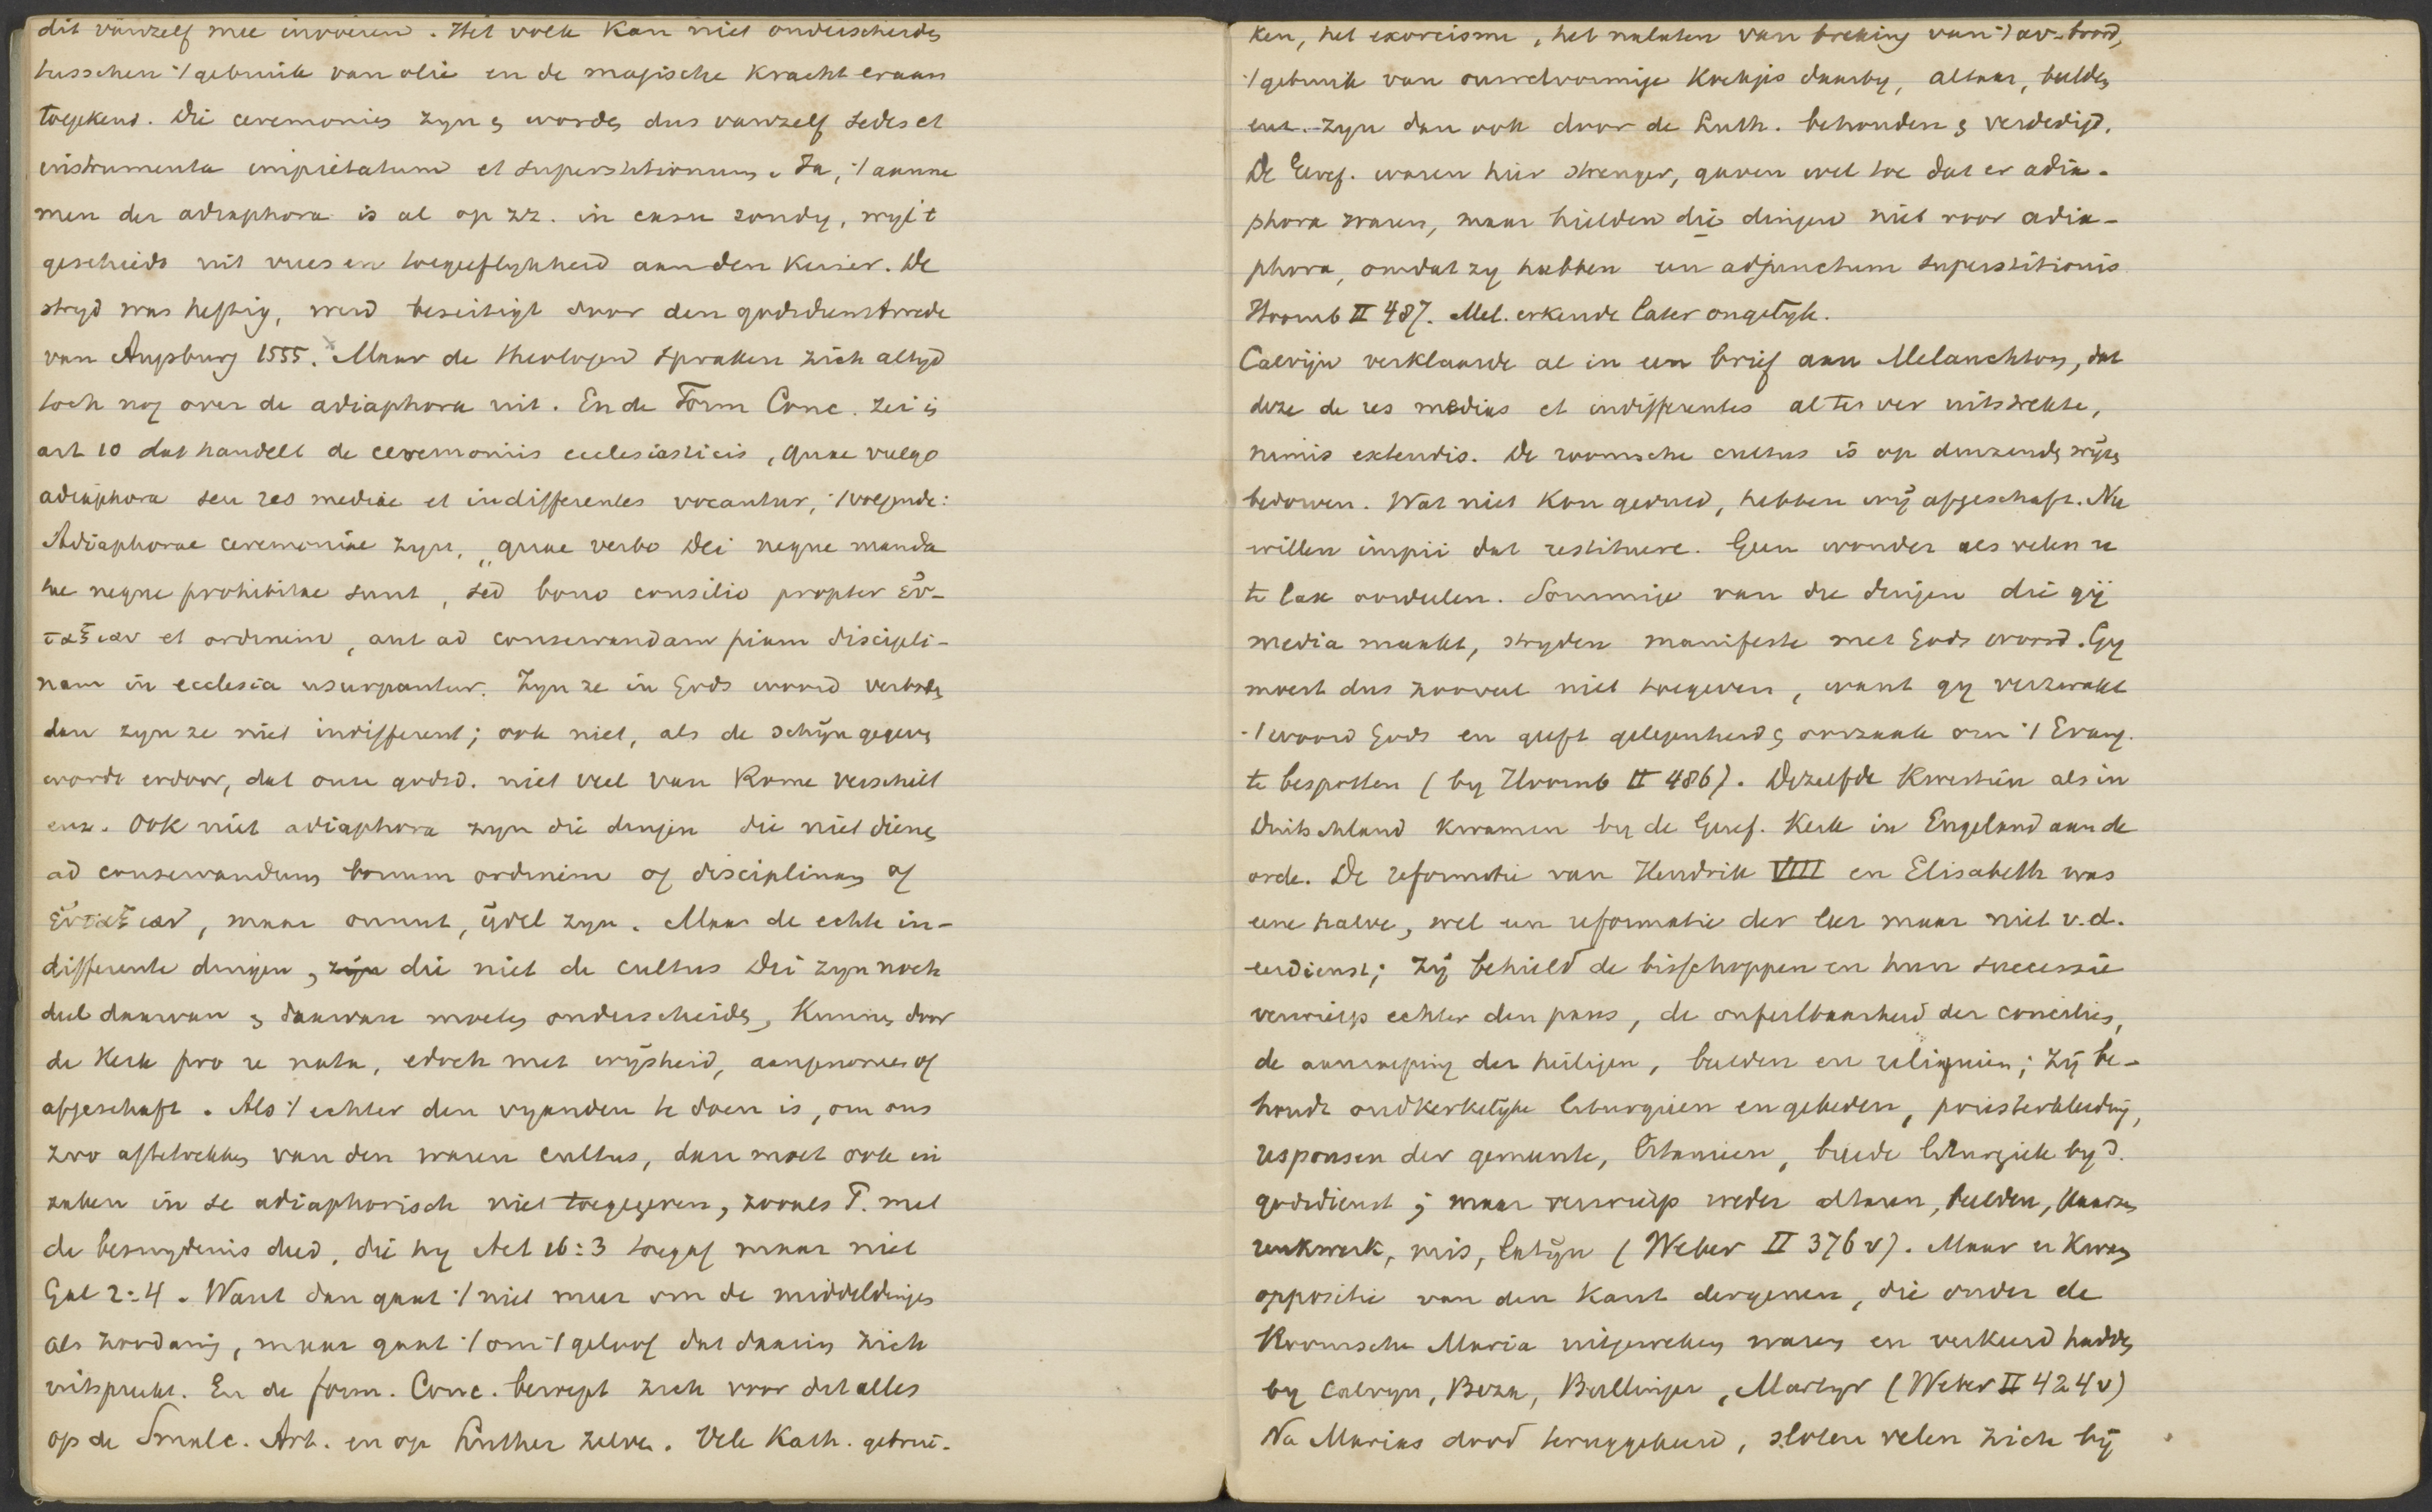 dit vanzelf mee invoeren. Het volk kan niet onderscheiden
tusschen ·/ gebruik van olie en de magische kracht eraan
toegekend. Die ceremonies zyn en worden dus vanzelf sedes et
instrumenta impietatum et superstitionum. Ja, ·/ aanne
men der adiaphora is al op zz. in casu zondig, wyl 't
geschiedt uit vrees en toegeeflykheid aan den Keizer. De
stryd was heftig, werd beseitigt door den godsdienstvrede
van Augsburg 1555. Maar de theologen spraken zich altyd
toch nog over de adiaphora uit. En de Form Conc. zei in
art 10 dat handelt de ceremoniis ecclesiasticis, quae vulgo
adiaphora seu res mediae et indifferentes vocantur, ·/ volgende:
Adiaphorae ceremoniae zyn, „quae verbo Dei neque manda
tae neque prohibitae sunt, sed bono consilio propter εὐ-
ταξιαν et ordinem, aut ad conservandam piam discipli-
nam in ecclesia usurpantur. Zyn ze in Gods woord verboden
dan zyn ze niet indifferent; ook niet, als de schijn gegeven
wordt erdoor, dat onze godsd. niet veel van Rome verschilt
enz. Ook niet adiaphora zyn die dingen die niet dienen
ad conservandum bonum ordinem of disciplinam of
εὐταξιαν, maar onnut, ijdel zyn. Maar de echte in-
differente dingen, zijn die niet de cultus Dei zyn noch
deel daarvan en daarvan moeten onderscheiden, kunnen door
de Kerk pro re nata, edoch met wijsheid, aangenomen of
afgeschaft. Als ·/ echter den vyanden te doen is, om ons
zoo aftetrekken van den waren cultus, dan moet ook in
zaken in se adiaphorisch niet toegegeven, zooals P. met
de besnydenis deed, die hy Act 16:3 toegaf maar niet
Gal 2:4. Want dan gaat ·/ niet meer om de middeldingen
als zoodanig, maar gaat ·/ om ·/ geloof dat daarin zich
uitspreekt. En de form. Conc. beroept zich voor dit alles
op de Smalc. Art. en op Luther zelven. Vele Kath. gebrui-
ken, het exorcisme, het nalaten van breking van ·/ av-brood,
·/ gebruik van ouwelvormige koekjes daarby, altaar, beelden
enz. zyn dan ook door de Luth. behouden en verdedigd.
De Geref. waren hier strenger, gaven wel toe dat er adia-
phora waren, maar hielden die dingen niet voor adia-
phora, omdat zy hebben een adjunctum superstitionis
Hoornb II 487. Mel. erkende later ongelyk.
Calvijn verklaarde al in een brief aan Melanchton, dat
deze de res medias et indifferentes al te ver uitstrekte,
nimis extendis. De roomsche cultus is op duizende wijzen
bedorven. Wat niet kon geduld, hebben wij afgeschaft. Nu
willen impii dat restituere. Geen wonder als velen u
te lax oordeelen. Sommige van die dingen die gij
media maakt, stryden manifeste met Gods woord. Gy
moest dus zooveel niet toegeven, want gy verzwakt
·/ woord Gods en geeft gelegenheid en oorzaak om ·/ Evang.
te bespotten (by Hoornb II 486). Dezelfde kwestien als in
Duitschland kwamen by de Geref. Kerk in Engeland aan de
orde. De reformatie van Hendrik VIII en Elisabeth was
eene halve, wel een reformatie der leer maar niet v.d.
eerdienst; zij behield de bisschoppen en hun successie
verwierp echter den paus, de onfeilbaarheid der conciliën,
de aanroeping der heiligen, beelden en reliquien; zij be-
houdt oudkerkelyke liturgieen en gebeden, priesterkleeding,
responsen der gemeente, litanieen, breede liturgiek by d.
godsdienst; maar verwierp weder altaren, beelden, kaarsen
reukwerk, mis, latijn (Weber II 376 v). Maar er kwam
oppositie van den kant dergenen, die onder de
Roomsche Maria uitgeweken waren en verkeerd hadden
by Calvyn, Beza, Bullinger, Martyr (Weber II 424 v)
Na Marias dood teruggekeerd, sloten velen zich bij